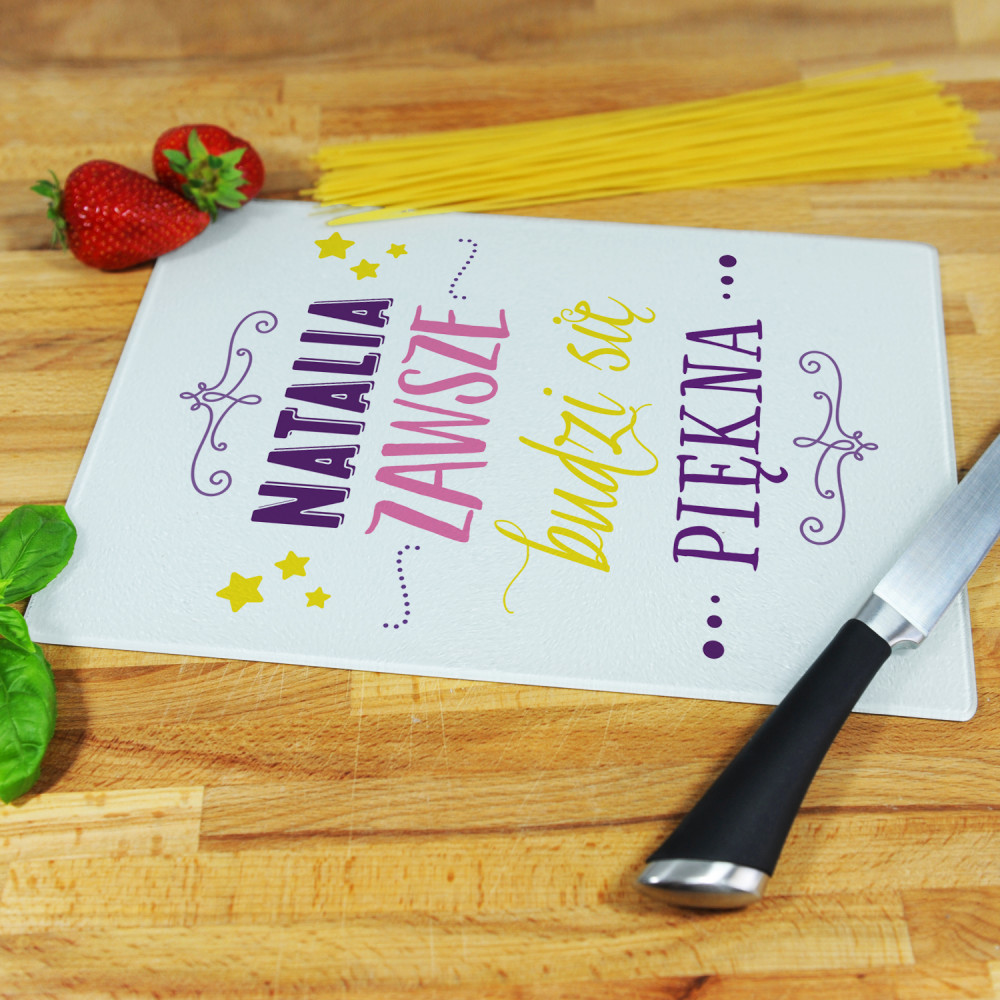 NATALIA
ZAWSZE
budzi się
... PIĘKNA ...